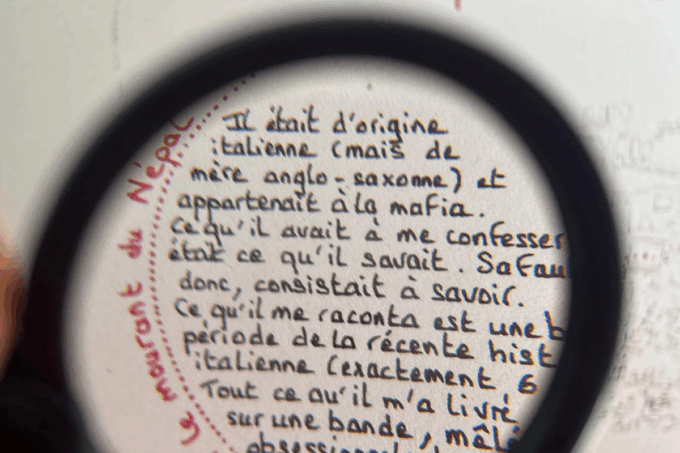 Le mourant du Népal
Il était d'origine
italienne (mais de
mère anglo-saxonne) et
appartenait à la mafia.
Ce qu'il avait à me confesser
était ce qu'il savait. Sa
donc, consistait à savoir.
Ce qu'il me raconta est une
période de la récente
italienne (exactement 6
Tout ce qu'il m'a livré
sur une bande,